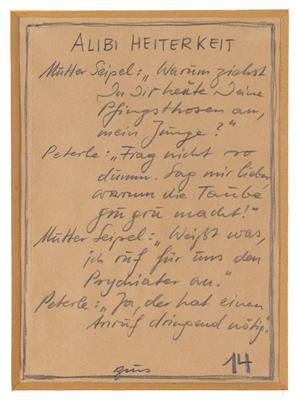 ALIBI HEITERKEIT
Mutter Seipel: „Warum ziehst
Du Dir heute Deine
Pfingsthosen an,
mein Junge?"
Peterle: „Frag nicht so
dumm. Sag mir lieber,
warum die Taube
gru gru macht!"
Mutter Seipel: „Weißt was,
ich ruf für uns den
Psychiater an."
Peterle: „Ja, der hat einen
Anruf dringend nötig."
14